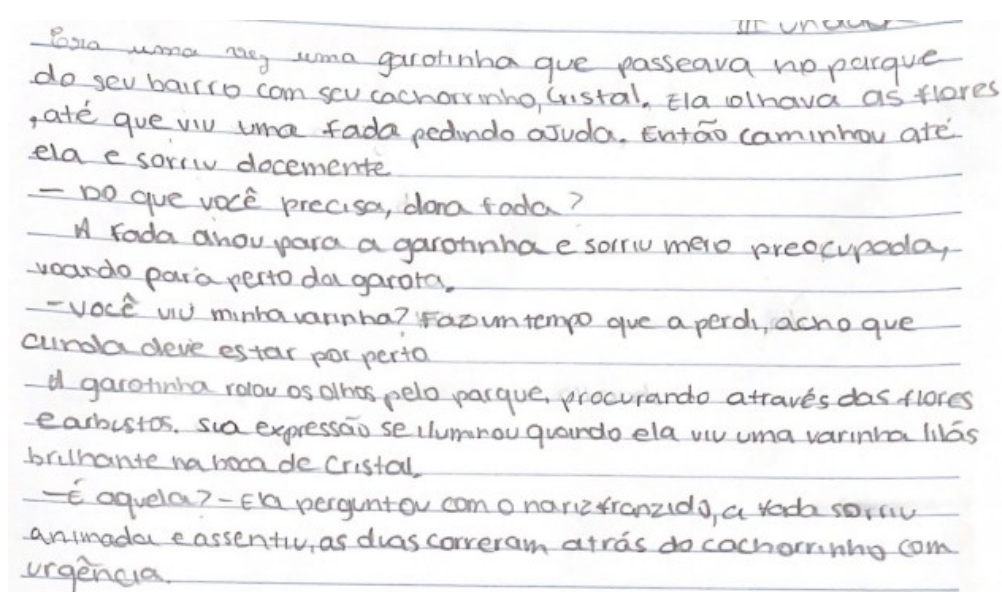 Era uma vez uma garotinha que passeava no parque
do seu bairro com seu cachorrinho, Cristal. Ela olhava as flores
, até que viu uma fada pedindo ajuda. Então caminhou até
ela e sorriu docemente
— Do que você precisa, dona fada?
A fada olhou para a garotinha e sorriu meio preocupada,
voando para perto da garota.
— Você viu minha varinha? Faz um tempo que a perdi, acho que
ainda deve estar por perto
A garotinha rolou os olhos pelo parque, procurando através das flores
e arbustos. Sua expressão se iluminou quando ela viu uma varinha lilás
brilhante na boca de Cristal.
— É aquela? - Ela perguntou com o nariz franzido, a fada sorriu
animada e assentiu, as duas correram atrás do cachorrinho com
urgência.